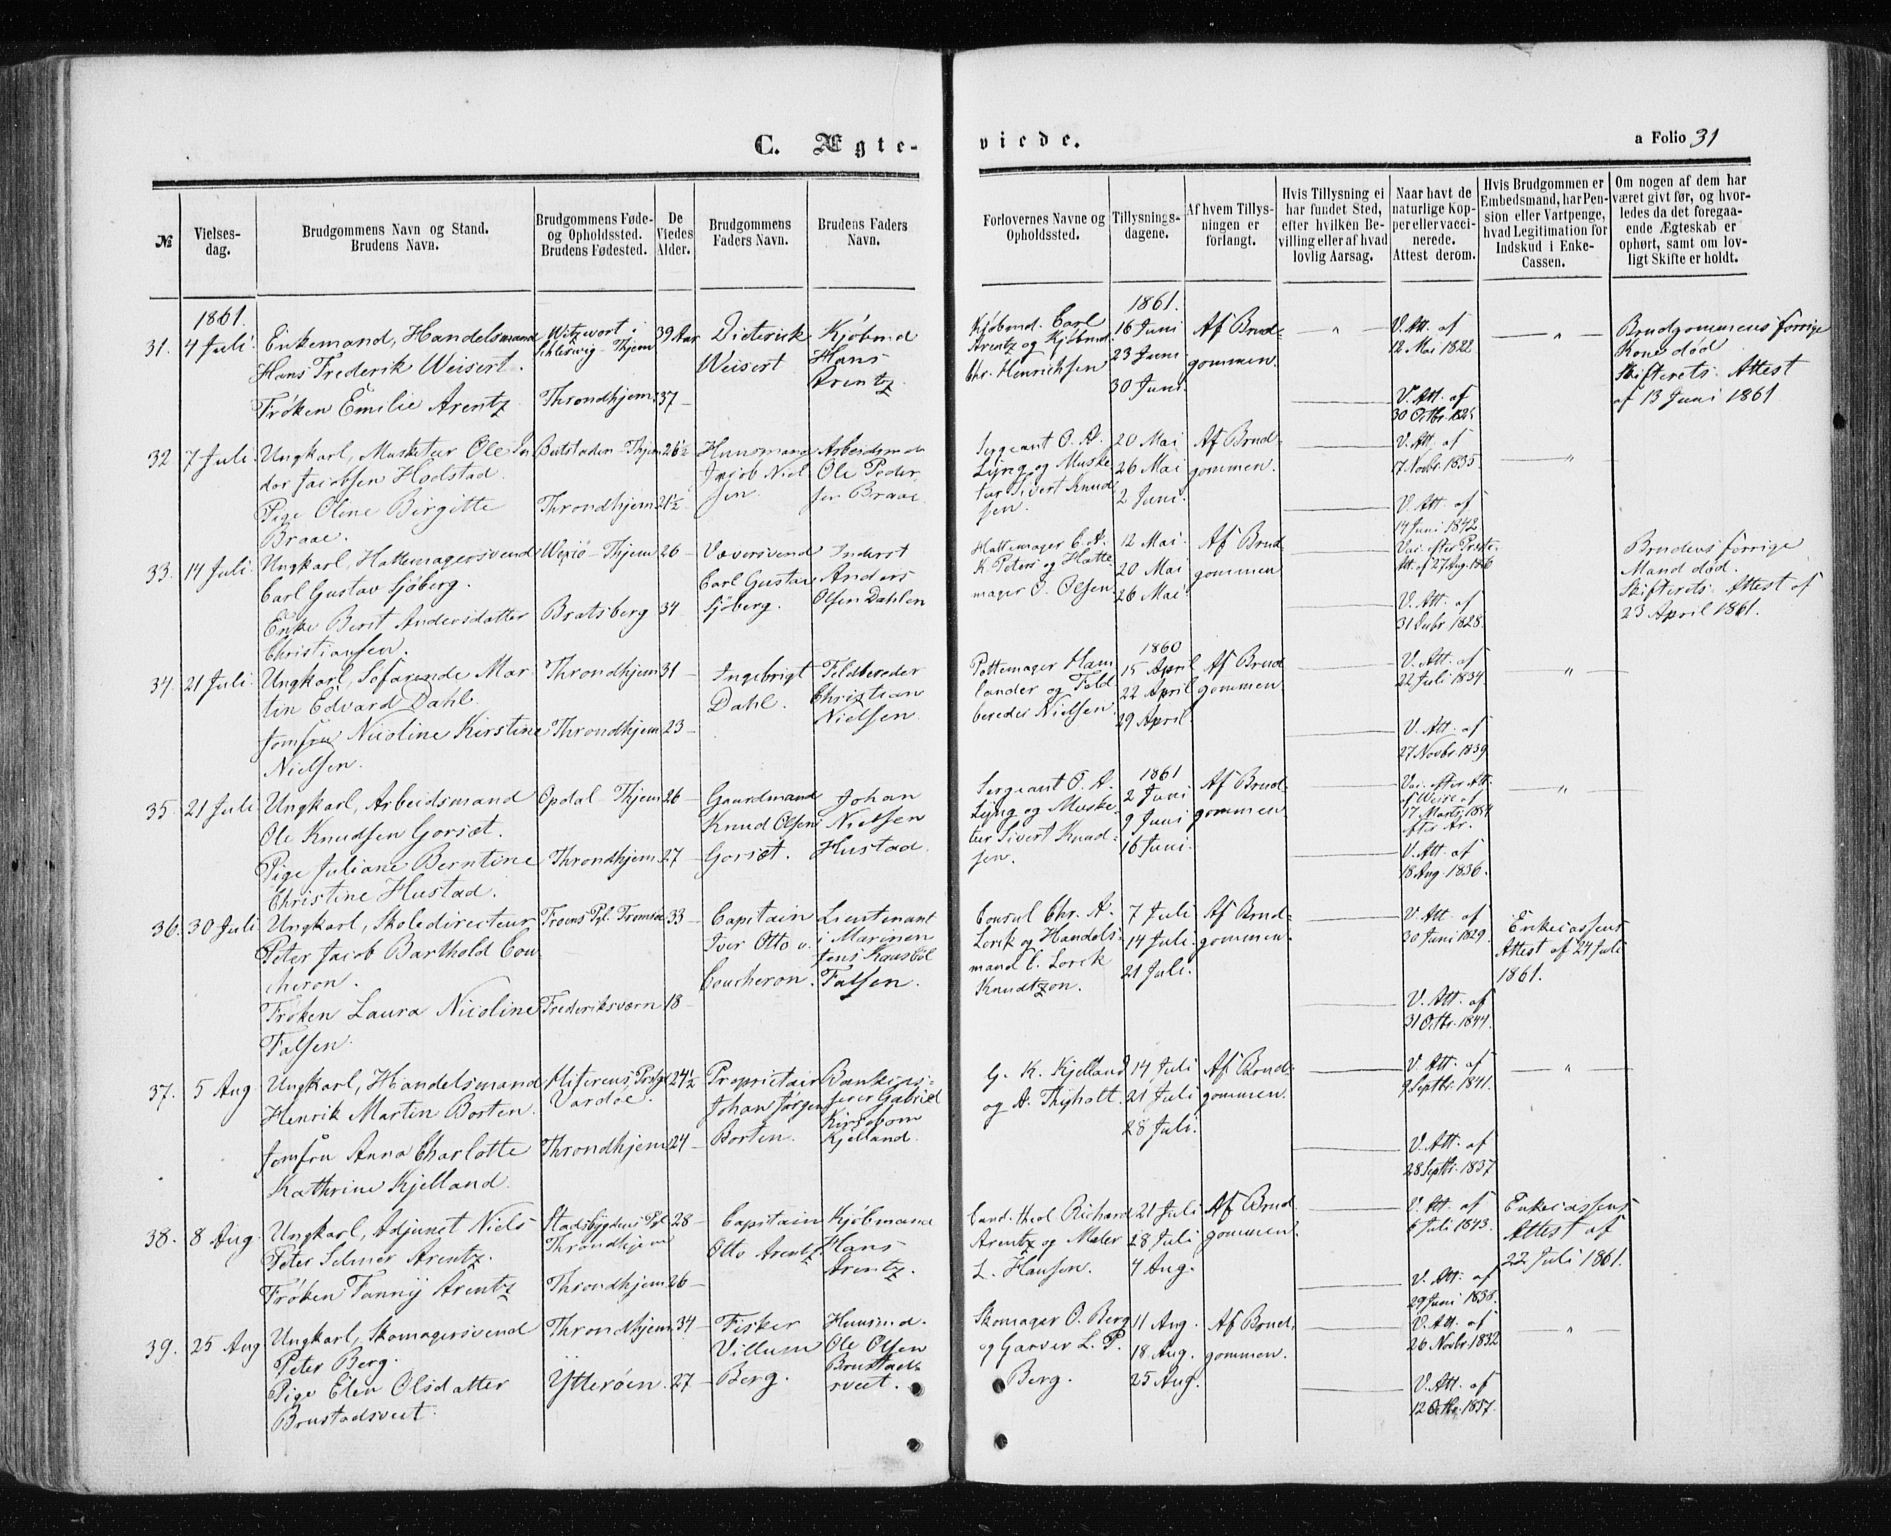 C. Ægte-
viede.
a Folio 31
№
Vielses-
dag.
Brudgommens Navn og Stand.
Brudens Navn.
Brudgommens Føde-
og Opholdssted.
Brudens Fødested.
De
Viedes
Alder.
Brudgommens
Faders Navn.
Brudens Faders
Navn.
Forlovernes Navne og
Opholdssted.
Tillysnings-
dagene.
Af hvem Tillys-
ningen er
forlangt.
Hvis Tillysning ei
har fundet Sted,
efter hvilken Be-
villing eller af hvad
lovlig Aarsag.
Naar havt de
naturlige Kop-
per eller vacci-
nerede.
Attest derom.
Hvis Brudgommen er
Embedsmand, har Pen-
sion eller Vartpenge,
hvad Legitimation for
Indskud i Enke-
Cassen.
Om nogen af dem har
været givt før, og hvor-
ledes da det foregaa-
ende Ægteskab er
ophørt, samt om lov-
ligt Skifte er holdt.
1861.
31.
4 Juli.
Enkemand, Handelsmand
Hans Frederik Weisert.
Frøken Emilie Arentz
Witzwort i
Schleswig - Thjem
Throndhjem
39 Aar
37 -
Diderisk
Weisert
Kjøbmd
Hans
Arentz.
Kjøbmd. Carl
Arentz og Kjøbmd.
Chr. Henrichsen
1861.
16 Juni
23 Juni
30 Juni.
Af Brud-
gommen.
V. Att. af
12 Mai 1822
V. Att. af
30 Octbr. 182
Brudgommens forrige
Kone død
Skifterets Attest
af 13 Juni 1861
32
7 Juli.
Ungkarl, Musketeur Ole Pe
der Jacobsen Hodstad.
Pige Oline Birgitte
Braae.
Beitstaden - Thjem
Throndhjem
26½
21½
Huusmand
Jacob Niel
sen.
Arbeidsmd
Ole Peder
sen Braae.
Sergeant O. A.
Lyng og Muske
tur Sivert Knud
sen.
20 Mai
26 Mai
2 Juni.
Af Brud-
gommen.
V. Att. af
17 Novbr. 1835
V. Att. af
14 Juni 1842
33.
14 Juli.
Ungkarl, Hattemagersvend
Carl Gustav Sjöberg.
Enke Berit Andersdatter
Christiansen.
Wexiö - Thjem
Bratsberg
26 -
34
Væversvend
Carl Gustav
Sjöberg.
Inderst
Anders
Olsen Dahlen
Hattemager C. A.
K. Peters og Hatte
mager O. Olsen
12 Mai
20 Mai
26 Mai
Af Brud
gommen
Vac. efter Præste
Att. af 27 Aug. 1846
V. Att. af
31 Decbr. 1828.
Brudens forrige
Mand død.
Skifterets Attest af
23 April 1861.
34
21 Juli
Ungkarl, Søfarende Mar
tin Edvard Dahl.
Jomfru Nicoline Kirstine
Nielsen.
Throndhjem
Throndhjem
31 -
23 -
Ingebrigt
Dahl.
Feldbereder
Christian
Nielsen
Pottemager Ham
lander og Feld
bereder Nielsen.
1860
15 April
22 April
29 April
Af Brud
gommen
V. Att. af
22 Juli 1834
V. Att. af
27 Novbr. 1839
35.
21 Juli
Ungkarl, Arbeidsmand
Ole Knudsen Gorsæt.
Pige Juliane Berntine
Christine Hustad.
Opdal - Thjem
Throndhjem
26 -
27 -
Gaardmand
Knud Olsen
Gorsæt.
Johan
Nielsen
Hustad.
Sergeant O. A.
Lyng og Muske
tur Sivert Knud-
sen.
1861
2 Juni
9 Juni
16 Juni.
Af Brud-
gommen
Vac. efter Att.
17 Marts
V. Att. af
18 Aug. 1836.
36.
30 Juli
Ungkarl, Skoledirecteur
Peter Jacob Barthold Cou
cheron.
Frøken Laura Nicoline
Falsen.
Froens Pgl. Tromsøe
Frederiksværn
33 -
18 -
Capitain
Iver Otto v.
Coucheron.
Lieutenant
i Marinen
Jens Kousböl
Falsen.
Consul Chr. A.
Lorck og Handels-
mand C. Lorck
Knudtzon.
7 Juli
14 Juli.
21 Juli.
Af Brud-
gommen.
V. Att. af
30 Juni 1829.
V. Att. af
31 Octbr. 1844.
Enkecassens
Attest af 24 Juli
1861.
37.
5 Aug
Ungkarl, Handelsmand
Henrik Martin Borten.
Jomfru Anna Charlotte
Kathrine Kjelland.
Vardøe.
Throndhjem
24½
24 -
Proprietair
Johan Jørgen
Borten.
Gabriel
Kirsebom
Kjelland.
G. K. Kjelland
og A. Thyholt.
14 Juli
21 Juli
28 Juli.
Af Brud-
gommen.
V. Att. af
9 Septbr. 1841.
V. Att. af
28 Septbr. 1837
38.
8 Aug.
Ungkarl, Adjunct Niels
Peter Selmer Arentz.
Frøken Fanny Arentz
Stadsbygdens Pgl
Throndhjem
Throndhjem
28 -
26 -
Capitain
Otto Arentz.
Kjøbmand
Hans
Arentz.
Cand. theol Richard
Arentz og Maler
L. Hansen.
21 Juli
28 Juli
4 Aug.
Af Brud
gommen.
V. Att. af
6 Juli 1843.
V. Att. af
29 Juni 1838.
Enkecassens
Attest af
22 Juli 1861.
39.
25 Aug
Ungkarl, Skomagersvend
Peter Berg.
Pige Elen Olsdatter
Brustadsveet.
Throndhjem
Ytterøen.
34 -
27 -
Fisker
Villum
Berg.
Huusmd.
Ole Olsen
Brustads-
veet.
Skomager O. Berg
og Garver L. P.
Berg.
11 Aug.
18 Aug.
25 Aug.
Af Brud-
gommen.
V. Att. af
26 Novbr. 1832
V. Att. af
12 Octbr. 1837.